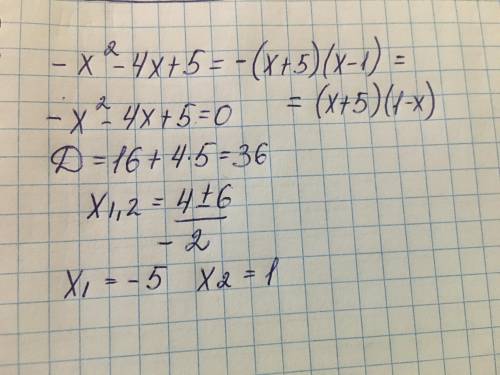 -x² - 4x + 5 = -(x+5)(x-1) =
= (x+5)(1-x)
-x² - 4x + 5 = 0
D = 16 + 4·5 = 36
x₁,₂ = (4 ± 6)/(-2)
x₁ = -5 x₂ = 1